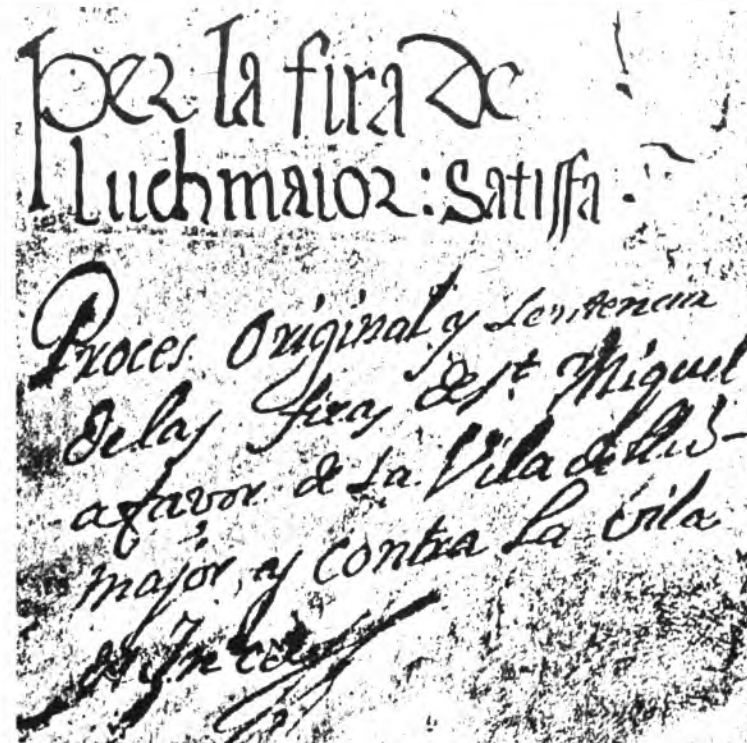 per la fira de
Luchmaior: Satiffa.
Proces Original y Sentencia
de las firas de St. Miquel
a favor de La Vila de Lluch-
major, y contra La Vila
de Inca